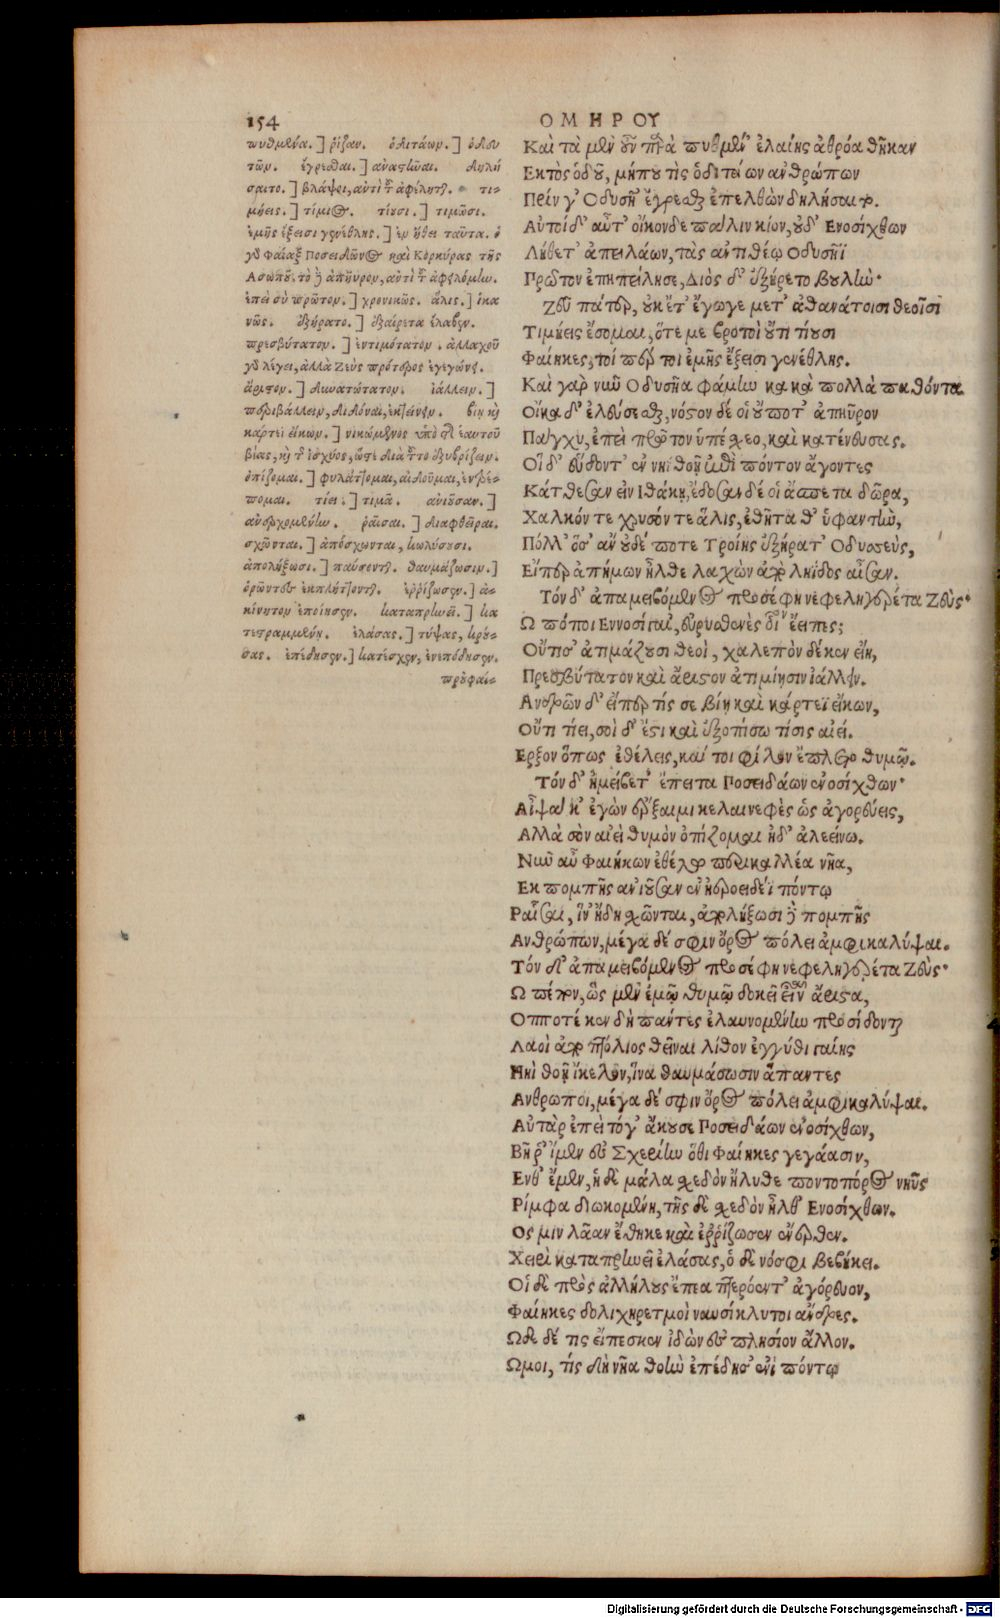 154
ΟΜΗΡΟΥ
πυθμένα.] ῥίζαν. ὁδιτάων.] ὁδου
τῶν. ἔγρεσθαι.] ἀναστῶαι. δηλή
σαιτο.] βλάψει, αὐτὶ τοῦ ἀφέλητ. τι-
μήεις.] τίμιος. τίουσι.] τιμῶσι.
ἐμῆς ἔξεισι γενέθλης.] ἐν ἤθει ταῦτα. ὁ
γὸ Φαίαξ Ποσειδῶνος καὶ Κορκύρας τῆς
Ασωποῦ. τὸ ἢ ἀπηύρον, αὐτὶ τοῦ ἀφειλόμην.
ἐπεὶ σὺ πρῶτον.] χρονικῶς. ἅλις.] ἱκα
νῶς. ἐξήρατο.] ἐξαίρετα ἔλαβεν.
πρεσβύτατον.] ἐντιμότατον. ἀλλαχοῦ
γὸ λέγει, ἀλλὰ Ζεὺς πρότερος ἐγεγόνει.
ἄριστον.] δυνατώτατον. ἰάλλειν.]
περιβάλλειν, διδόναι, ἐκτείνειν. βίῃ καὶ
κάρτεϊ εἴκων.] νικώμενος ὑπὸ τῆς ἑαυτοῦ
βίας, καὶ τῆς ἰσχύος, ὥστε διὰ τοῦτο ἐξυβρίζειν.
ὀπίζομαι.] φυλάττομαι, αἰδοῦμαι, ἐντρέ-
πομαι. τίει.] τιμᾶ. ἀνιοῦσαν.]
ἀνερχομένην. ῥαῖσαι.] διαφθεῖραι.
σχῶνται.] ἀπόσχωνται, κωλύσουσι.
ἀπολήξωσι.] παύσονται. θαυμάζωσιν.]
ὁρῶντες ἐκπλήττονται. ἐρρίζωσεν.] ἀ-
κίνητον ἐποίησεν. καταπρηνεῖ.] κα
τετραμμένῃ. ἐλάσας.] τύψας, κρού-
σας. ἐπέδησεν.] κατέσχεν, ἐνεπόδησεν.
προυφαί-
Καὶ τὰ μὲν οὖν παρὰ πυθμέν' ἐλαίης ἀθρόα θῆκαν
Εκτὸς ὁδοῦ, μήπου τὶς ὁδιτάων ἀνθρώπων
Πρίν γ' Οδυσῆ' ἔγρεσθαι ἐπελθὼν δηλήσαιτο.
Αὐτοὶ δ' αὖτ' οἶκονδε πάλιν κίον, οὐδ' Ενοσίχθων
Λήθετ' ἀπειλάων, τὰς ἀντιθέῳ Οδυσῆϊ
Πρῶτον ἐπηπείλησε, Διὸς δ' ἐξήρετο βουλήν·
Ζεῦ πάτερ, οὐκ ἔτ' ἔγωγε μετ' ἀθανάτοισι θεοῖσι
Τιμήεις ἔσομαι, ὅτε με βροτοὶ οὔτι τίουσι
Φαίηκες, τοί πέρ τοι ἐμῆς ἔξεισι γενέθλης.
Καὶ γὰρ νῦν Οδυσῆα φάμην κακὰ πολλὰ παθόντα
Οἴκαδ' ἐλεύσεσθαι, νόστον δέ οἱ οὔποτ' ἀπηῦρον
Πάγχυ, ἐπεὶ πρῶτον ὑπέσχεο, καὶ κατένευσας.
Οἱ δ' εὕδοντ' ἐν νηῒ θοῇ ἐπὶ πόντον ἄγοντες
Κάτθεσαν εἰν Ιθάκῃ, ἔδοσαν δέ οἱ ἄσπετα δῶρα,
Χαλκόν τε χρυσόν τε ἅλις, ἐσθῆτα θ' ὑφαντήν,
Πόλλ' ὅσ' ἂν οὐδέ ποτε Τροίης ἐξήρατ' Οδυσσεύς,
Εἴπερ ἀπήμων ἦλθε λαχὼν ἀπὸ ληΐδος αἶσαν.
Τόνδ' ἀπαμειβόμενος προσέφη νεφεληγερέτα Ζεύς·
Ω πόποι Εννοσίγαι', εὐρυσθενὲς οἷον ἔειπες;
Οὔτις' ἀτιμάζουσι θεοὶ, χαλεπὸν δέ κεν εἴη,
Πρεσβύτατον καὶ ἄριστον ἀτιμίῃσιν ἰάλλειν.
Ανδρῶν δ' εἴπερ τίς σε βίῃ καὶ κάρτεϊ εἴκων,
Οὔτι τίει, σοὶ δ' ἔστι καὶ ἐξοπίσω τίσις αἰεί.
Ερξον ὅπως ἐθέλεις, καί τοι φίλον ἔπλετο θυμῷ.
Τόνδ' ἠμείβετ' ἔπειτα Ποσειδάων ἐνοσίχθων·
Αἶψα κ' ἐγὼν ἔρξαιμι κελαινεφὲς ὡς ἀγορεύεις,
Αλλὰ σὸν αἰεὶ θυμὸν ὀπίζομαι ἠδ' ἀλεείνω.
Νῦν αὖ Φαιήκων ἐθέλω περικαλλέα νῆα,
Εκ πομπῆς ἀνιοῦσαν ἐν ἠεροειδέϊ πόντῳ
Ραῖσαι, ἵν' ἤδη σχῶνται, ἀπολήξωσι δὲ πομπῆς
Ανθρώπων, μέγα δέ σφιν ὄρος πόλει ἀμφικαλύψαι.
Τόν δ' ἀπαμειβόμενος προσέφη νεφεληγερέτα Ζεύς·
Ω πέπον, ὣς μὲν ἐμῷ θυμῷ δοκεῖ εἶναι ἄριστα,
Οπποτέ κεν δὴ πάντες ἐλαυνομένην προσίδωνται
Λαοὶ ἀπὸ πτόλιος θεῖναι λίθον ἐγγύθι γαίης
Νηῒ θοῇ ἴκελον, ἵνα θαυμάζωσιν ἅπαντες
Ανθρωποι, μέγα δέ σφιν ὄρος πόλει ἀμφικαλύψαι.
Αὐτὰρ ἐπεὶ τόγ' ἄκουσε Ποσειδάων ἐνοσίχθων,
Βῆ ῥ' ἴμεν ἐς Σχερίην ὅθι Φαίηκες γεγάασιν,
Ενθ' ἔμεν, ἡ δὲ μάλα σχεδὸν ἤλυθε ποντοπόρος νηῦς
Ρίμφα διωκομένη, τῆς δὲ σχεδὸν ἦλθ' Ενοσίχθων.
Ος μιν λᾶαν ἔθηκε καὶ ἐῤῥίζωσεν ἔνερθεν.
Χειρὶ καταπρηνεῖ ἐλάσας, ὁ δὲ νόσφι βεβήκει.
Οἱ δὲ πρὸς ἀλλήλους ἔπεα πτερόεντ' ἀγόρευον,
Φαίηκες δολιχήρετμοι ναυσίκλυτοι ἄνδρες.
Ωδε δέ τις εἴπεσκεν ἰδὼν ἐς πλησίον ἄλλον.
Ωμοι, τίς δὴ νῆα θοὴν ἐπέδησ' ἐνὶ πόντῳ
Digitalisierung gefördert durch die Deutsche Forschungsgemeinschaft - DFG